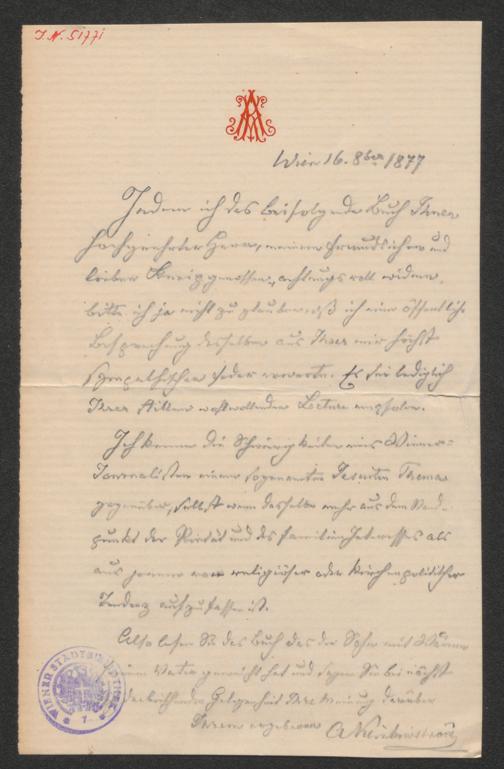 J.N. 51771
Wien 16. 8ber 1877
Indem ich das beifolgende Buch Ihnen
hochgeehrter Herr, meinem freundlichen und
lieber Kneipgenossen, achtungsvoll widme,
bitte ich ja nicht zu glauben, daß ich eine öffentliche
Besprechung desselben aus Ihrer mir höchst
sympathischen Feder erwarte. Es sei lediglich
Ihrer stillen wohlwollenden Lectüre empfohlen.
Ich kenne die Schwierigkeiten eines Wiener-
Journalisten einem sogenannten Jesuiten Thema
gegenüber, selbst wenn dasselbe mehr aus dem Stand-
punkt der Pietät und des Familien Interesses als
aus jenem religiöser oder kirchenpolitischer
Tendenz aufzufassen ist.
Also lesen Sie das Buch das der Sohn mit
dem Vater gemacht hat und sagen Sie bei nächst
Gelegenheit Ihre Meinung darüber
Ihrem ergebenen
WIENER STADTBIBLIOTHEK